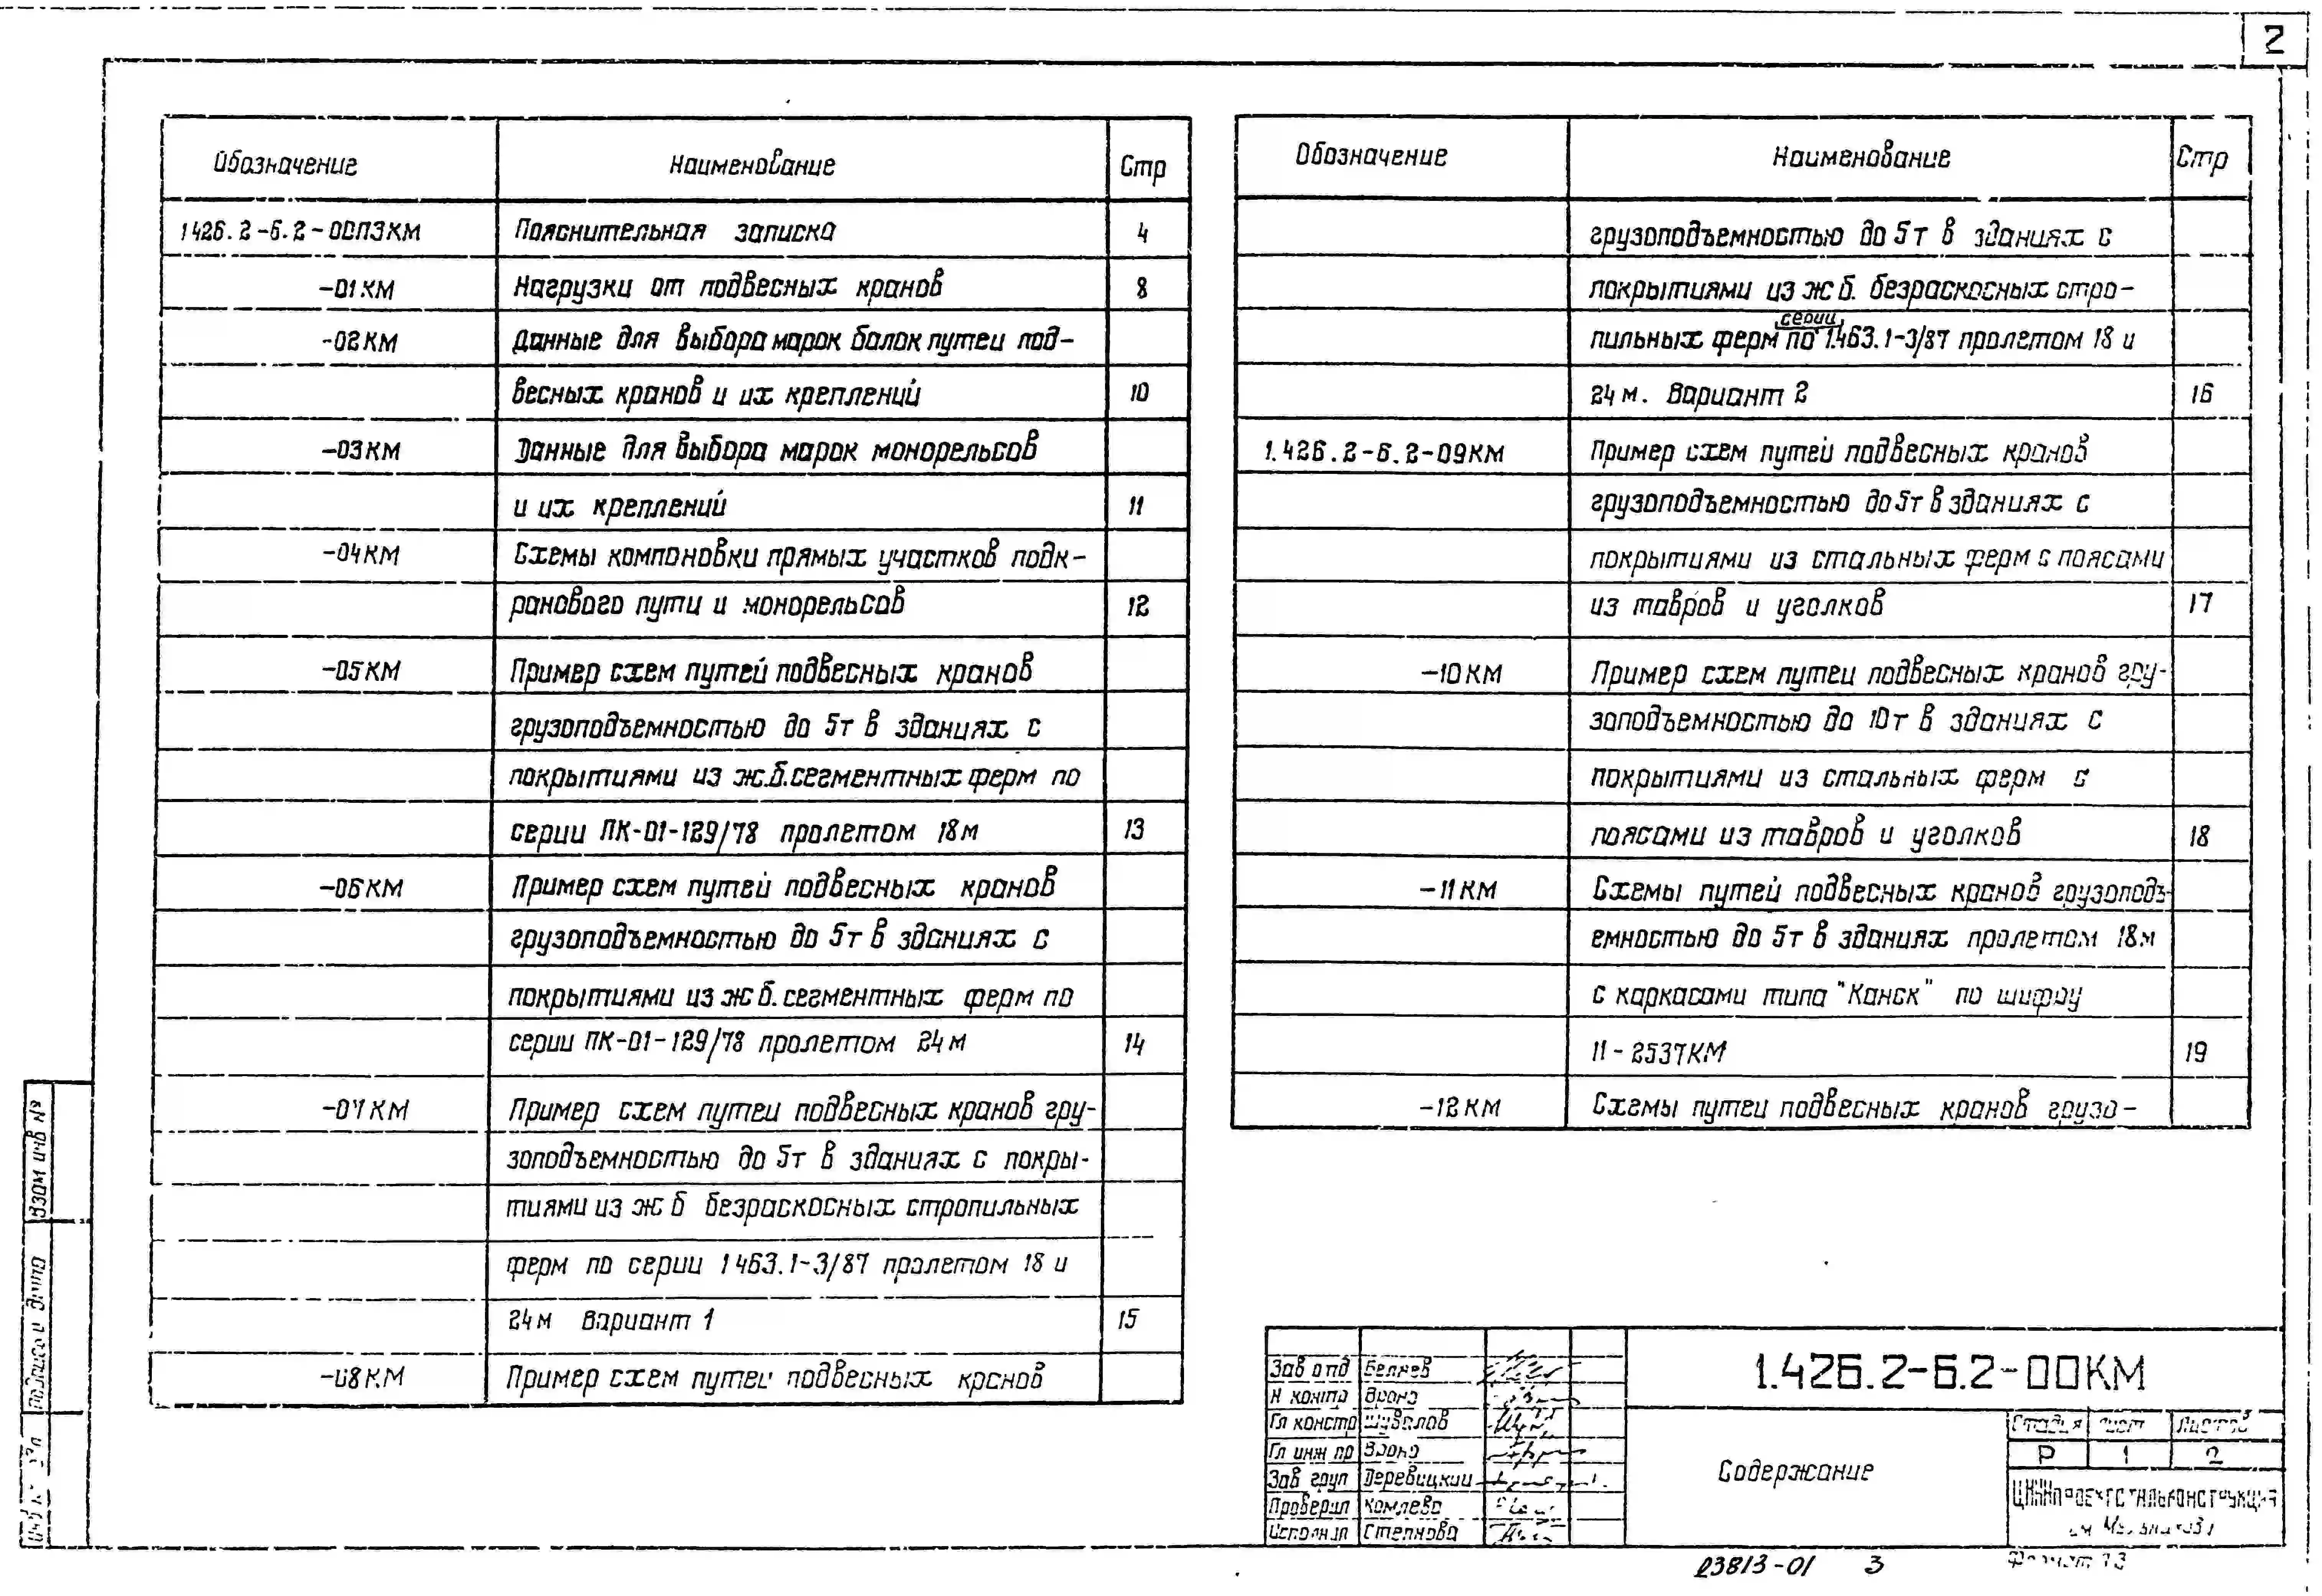 2
Обозначение
Наименование
Стр
1426.2-6.2-00ПЗКМ
Пояснительная записка
4
-01КМ
Нагрузки от подвесных кранов
8
-02КМ
Данные для выбора марок балок путеи под-
весных кранов и их креплений
10
-03КМ
Данные для выбора марок монорельсов
и их креплений
11
-04КМ
Схемы компоновки прямых участков подк-
ранового пути и монорельсов
12
-05КМ
Пример схем путей подвесных кранов
грузоподъемностью до 5т в зданиях с
покрытиями из ж.б.сегментных ферм по
серии ПК-01-129/78 пролетом 18м
13
-06КМ
Пример схем путей подвесных кранов
грузоподъемностью до 5т в зданиях с
покрытиями из ж б. сегментных ферм по
серии ПК-01-129/78 пролетом 24м
14
-07КМ
Пример схем путеи подвесных кранов гру-
зоподъемностью до 5т в зданиях с покры-
тиями из ж б безраскосных стропильных
ферм по серии 1463.1-3/87 пролетом 18 и
24м Вариант 1
15
-08КМ
Пример схем путеи подвесных кранов
Обозначение
Наименование
Стр
грузоподъемностью до 5т в зданиях с
покрытиями из ж б. безраскосных стро-
пильных ферм по серии 1.463.1-3/87 пролетом 18 и
24м. Вариант 2
16
1.426.2-6.2-09КМ
Пример схем путей подвесных кранов
грузоподъемностью до 5т в зданиях с
покрытиями из стальных ферм с поясами
из тавров и уголков
17
-10КМ
Пример схем путеи подвесных кранов гру-
зоподъемностью до 10т в зданиях с
покрытиями из стальных ферм с
поясами из тавров и уголков
18
-11КМ
Схемы путей подвесных кранов грузоподъ-
емностью до 5т в зданиях пролетом 18м
с каркасами типа "Канск" по шифру
11-2537КМ
19
-12КМ
Схемы путеи подвесных кранов грузо-
Взам инв №
Подпись и дата
Зав отд Беляев
Н контр Врона
Гл констр Шувалов
Гл инж пр Врона
Зав груп Деревицкии
Проверил Комлева
Исполнил Степнова
1.426.2-6.2-00КМ
Содержание
Стадия Лист Листов
Р 1 2
ЦНИИпроектстальконструкция
им Мельникова
23813-01 3
Формат А3